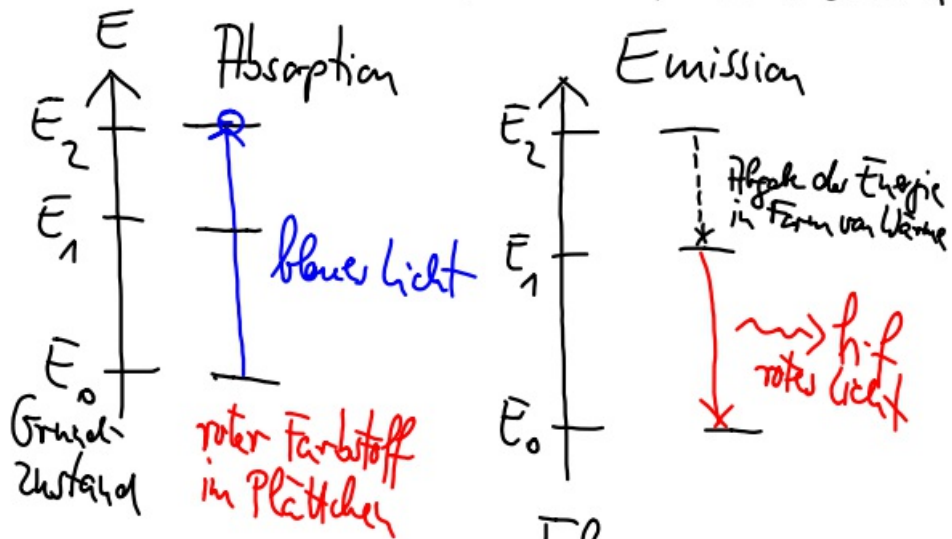 E
Absorption
E2
E1
E0
Grund-
zustand
blaues Licht
roter Farbstoff
im Plättchen
Emission
E2
Abgabe der Energie
in Form von Wärme
E1
h·f
rotes Licht
E0